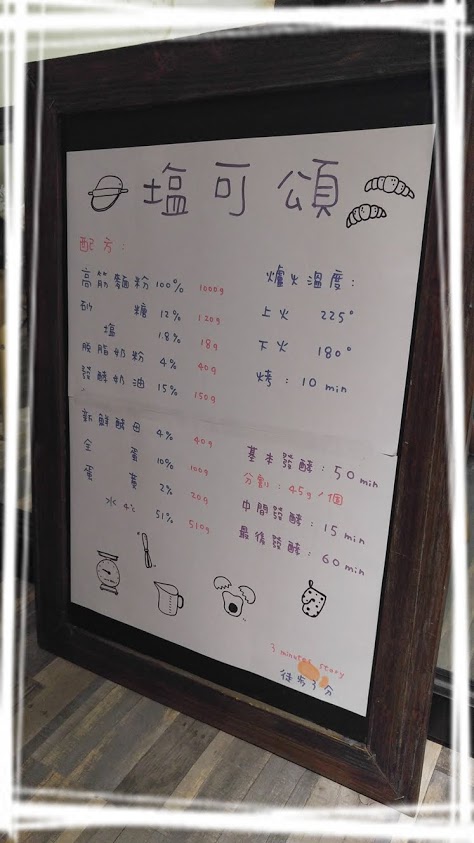 塩可頌
配方：
高筋麵粉 100% 1000g
砂糖 12% 120g
塩 1.8% 18g
脫脂奶粉 4% 40g
發酵奶油 15% 150g
新鮮酵母 4% 40g
全蛋 10% 100g
蛋黃 2% 20g
水4℃ 51% 510g
爐火溫度：
上火 225°
下火 180°
烤：10 min
基本發酵：50 min
分割：45g／個
中間發酵：15 min
最後發酵：60 min
3 minutes
徒步3分